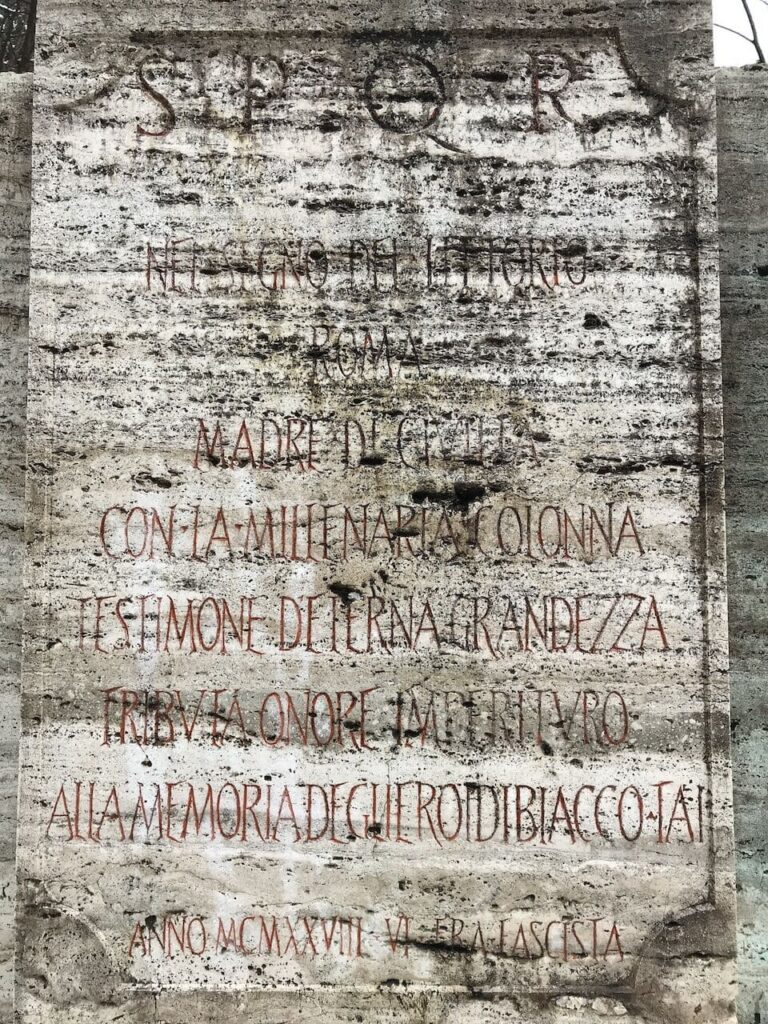 S P Q R
NEL SEGNO DEL LITTORIO
ROMA
MADRE DI CIVILTA
CON·LA·MILLENARIA·COLONNA
TESTIMONE DETERNA GRANDEZZA
TRIBVTA ONORE IMPERITVRO
ALLA MEMORIA DEGLI EROI DI BIACCO·TAI
ANNO MCMXXVIII VI ERA FASCISTA